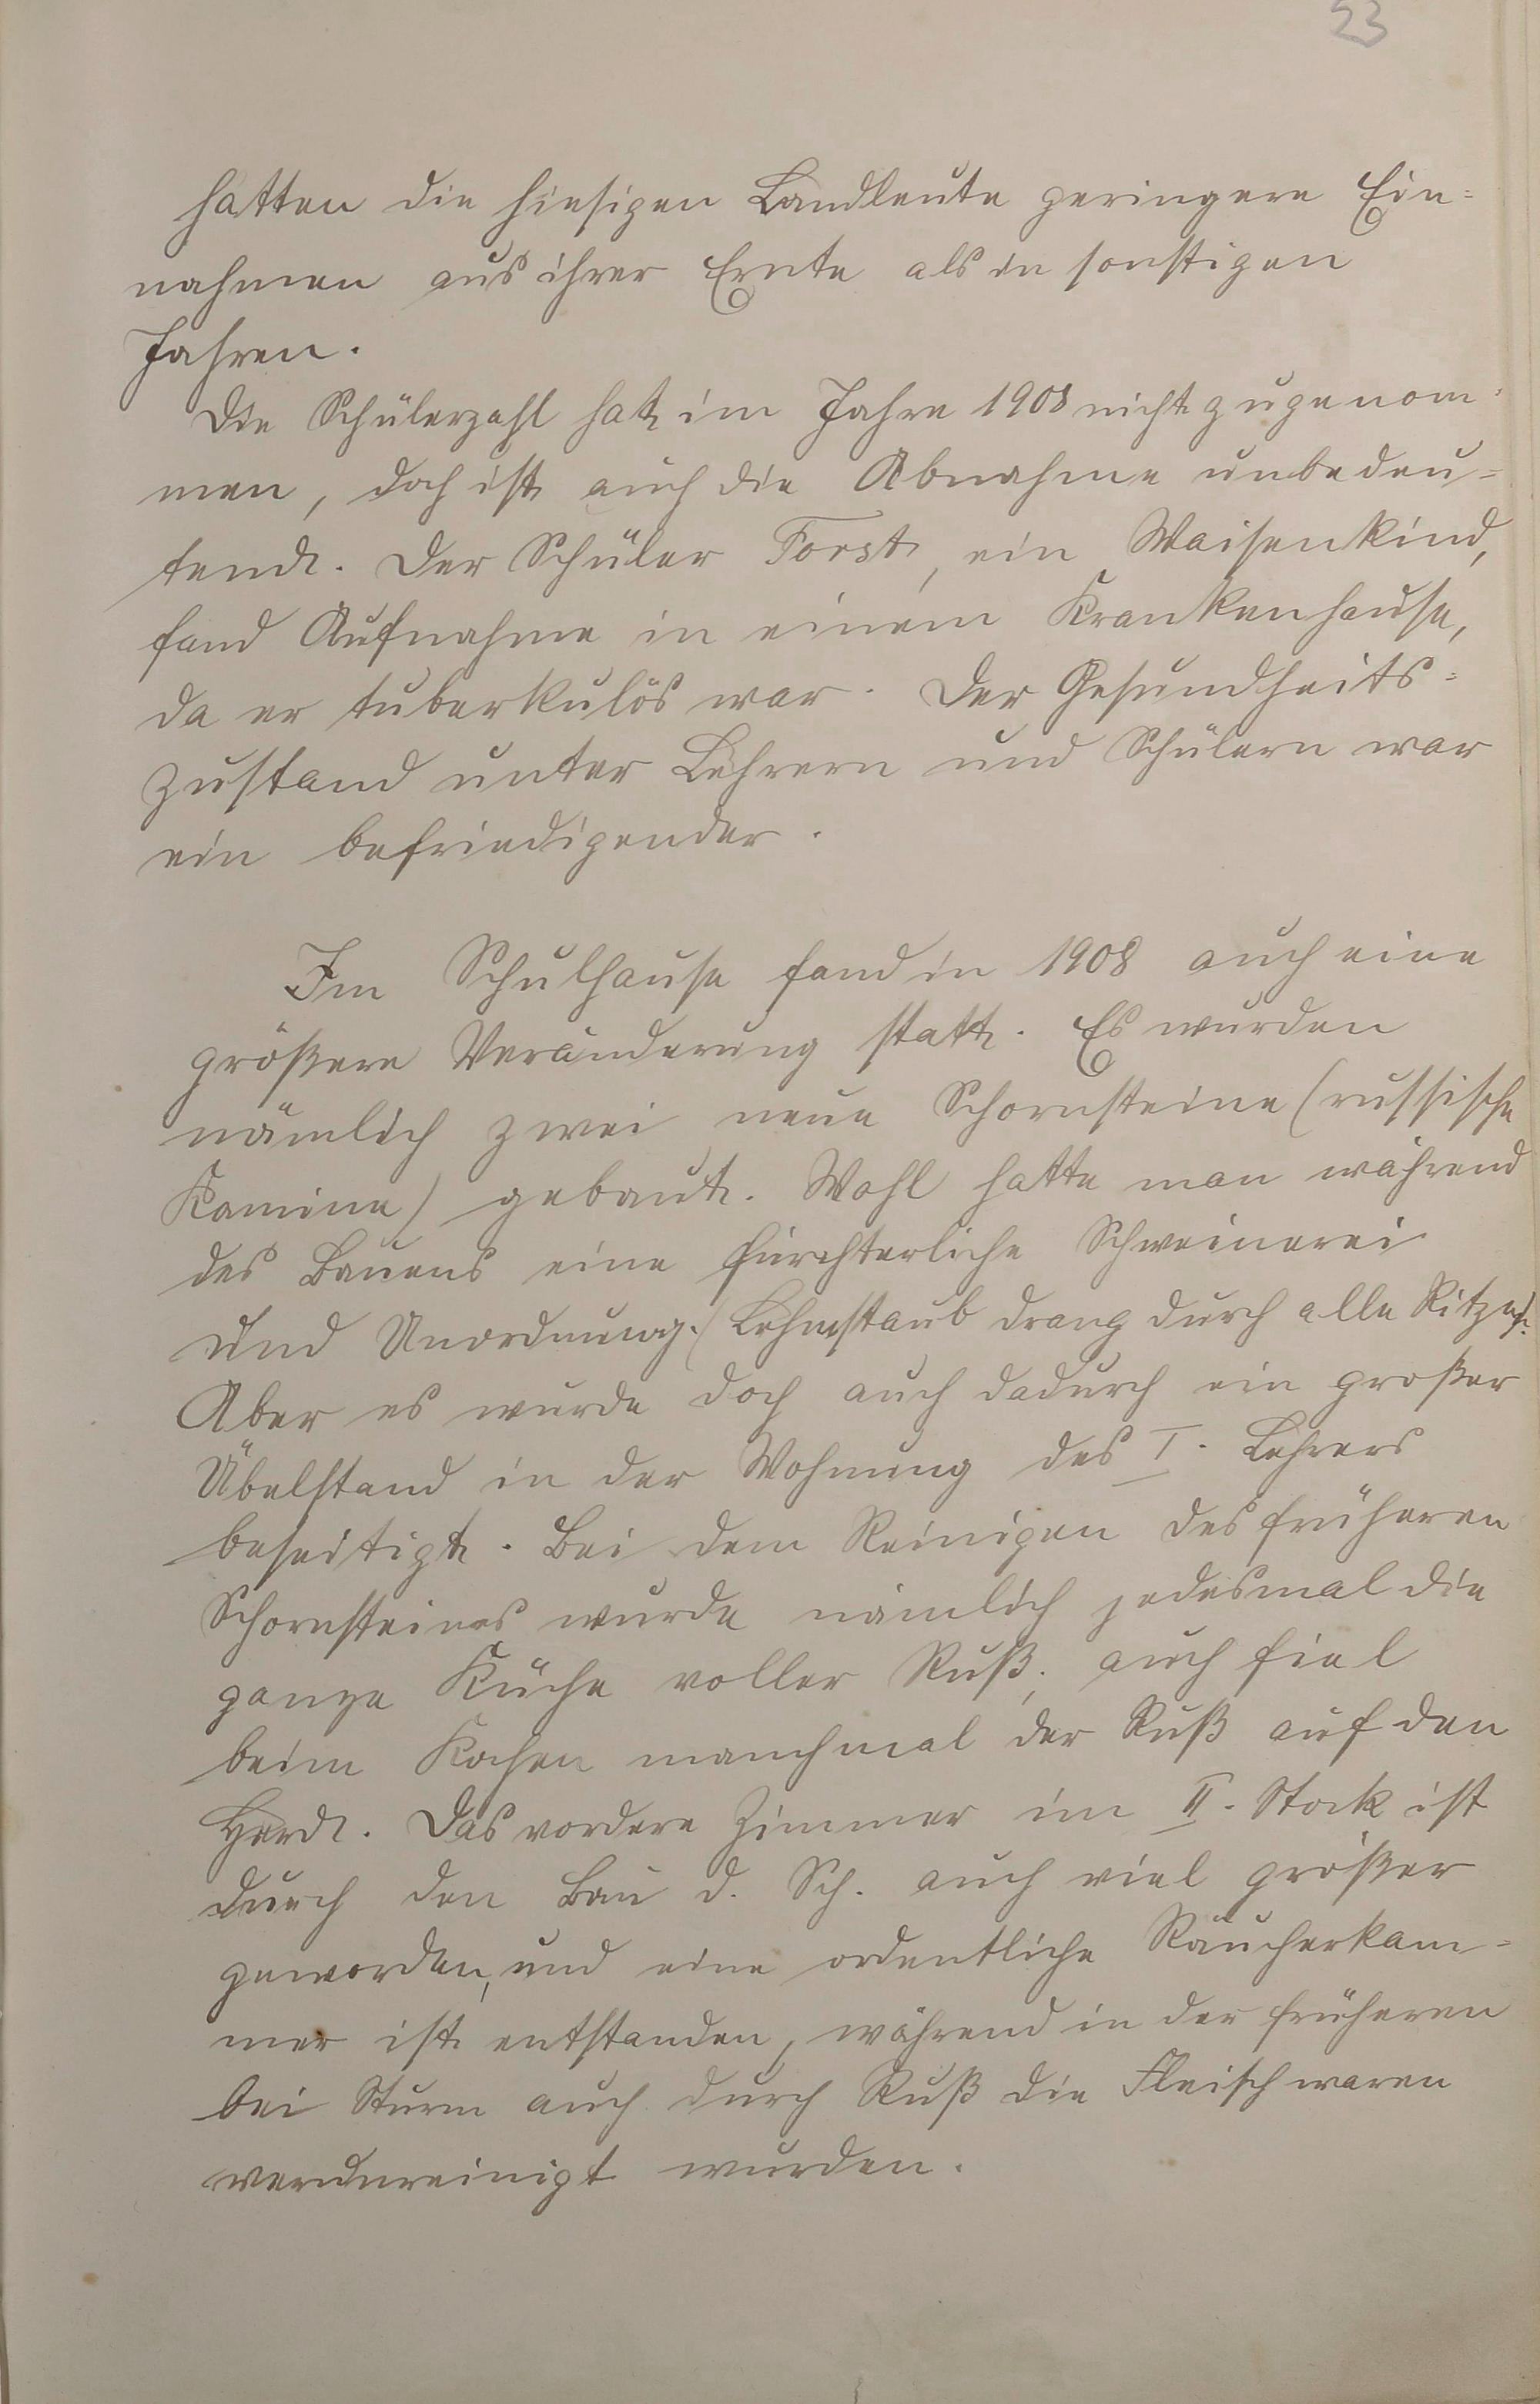 23
hatten die hiesigen Landleute geringere Ein=
nahmen aus ihrer Ernte als in sonstigen
Jahren.
Die Schülerzahl hat im Jahre 1908 nicht zugenom=
men, doch ist auch die Abnahme unbedeu=
tend. Der Schüler Forst, ein Waisenkind,
fand Aufnahme in einem Krankenhause,
da er tuberkulös war. Der Gesundheits=
zustand unter Lehrern und Schülern war
ein befriedigender.
Im Schulhause fand in 1908 auch eine
größere Veränderung statt. Es wurden
nämlich zwei neue Schornsteine (russische
Kamine) gebaut. Wohl hatte man während
des Bauens eine fürchterliche Schweinerei
und Unordnung. (Lehmstaub drang durch alle Ritzen).
Aber es wurde doch auch dadurch ein großer
Übelstand in der Wohnung des I. Lehrers
beseitigt. Bei dem Reinigen des früheren
Schornsteines wurde nämlich jedesmal die
ganze Küche voller Ruß; auch fiel
beim Kochen manchmal der Ruß auf den
Herd. Das vordere Zimmer im II. Stock ist
durch den Bau d. Sch. auch viel größer
geworden, und eine ordentliche Räucherkam=
mer ist entstanden, während in der früheren
bei Sturm auch durch Ruß die Fleischwaren
verunreinigt wurden.